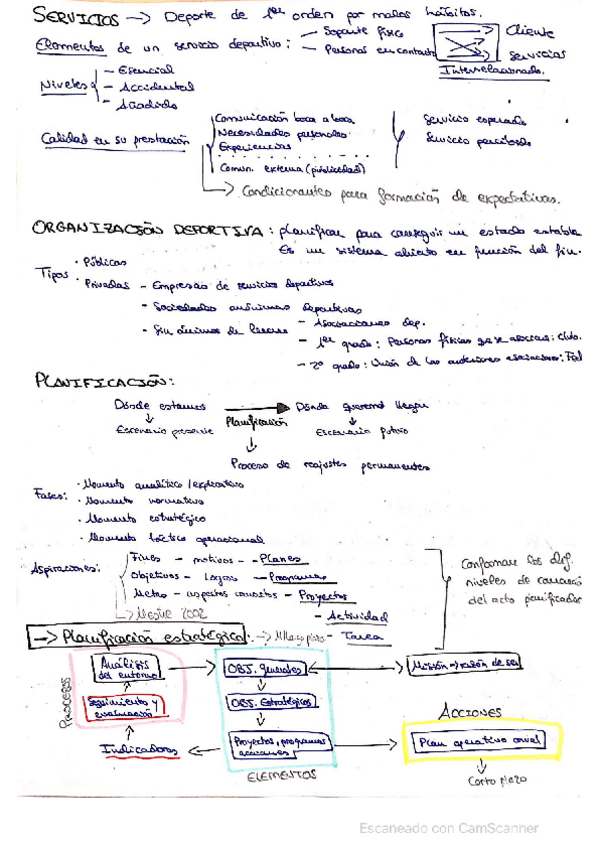 SERVICIOS → Deporte de 1er orden por malos hábitos.
Elementos de un servicio deportivo: - Soporte físico
- Personas en contacto
Cliente
Servicios
Interrelacionado.
Niveles - Esencial
- Accidental
- Añadido
Calidad en su prestación
Comunicación boca a boca
Necesidades personales
Experiencias
Comun. externa (publicidad)
Servicio esperado
Servicio percibido
→ Condicionantes para formación de expectativas.
ORGANIZACIÓN DEPORTIVA: planificar para conseguir un estado estable
Es un sistema abierto en función del fin.
Tipos · Públicas
· Privadas - Empresas de servicios deportivos
- Sociedades anónimas deportivas
- Sin ánimos de lucro - Asociaciones dep.
- 1er grado: Personas físicas que se asocian: Club.
- 2º grado: Unión de las anteriores asociaciones: Fed
PLANIFICACIÓN:
Dónde estamos → Dónde queremos llegar
Planificación
Escenario presente
Escenario futuro
Proceso de reajustes permanentes
Fases: · Momento analítico/explicativo
· Momento normativo
· Momento estratégico
· Momento táctico operacional
Aspiraciones: Fines - motivos - Planes
Objetivos - Logros - Programas
Metas - aspectos concretos - Proyectos
→ Mestre 2002
- Actividad
- Tarea
Conforman los dif.
niveles de concreción
del acto planificador
→ Planificación estratégica: → M/largo plazo
PROCESOS
Análisis
del entorno
Seguimiento y
evaluación
Indicadores
OBJ. generales
OBJ. Estratégicos
Proyectos, programas
acciones
ELEMENTOS
Misión → razón de ser
ACCIONES
Plan operativo anual
Corto plazo
Escaneado con CamScanner